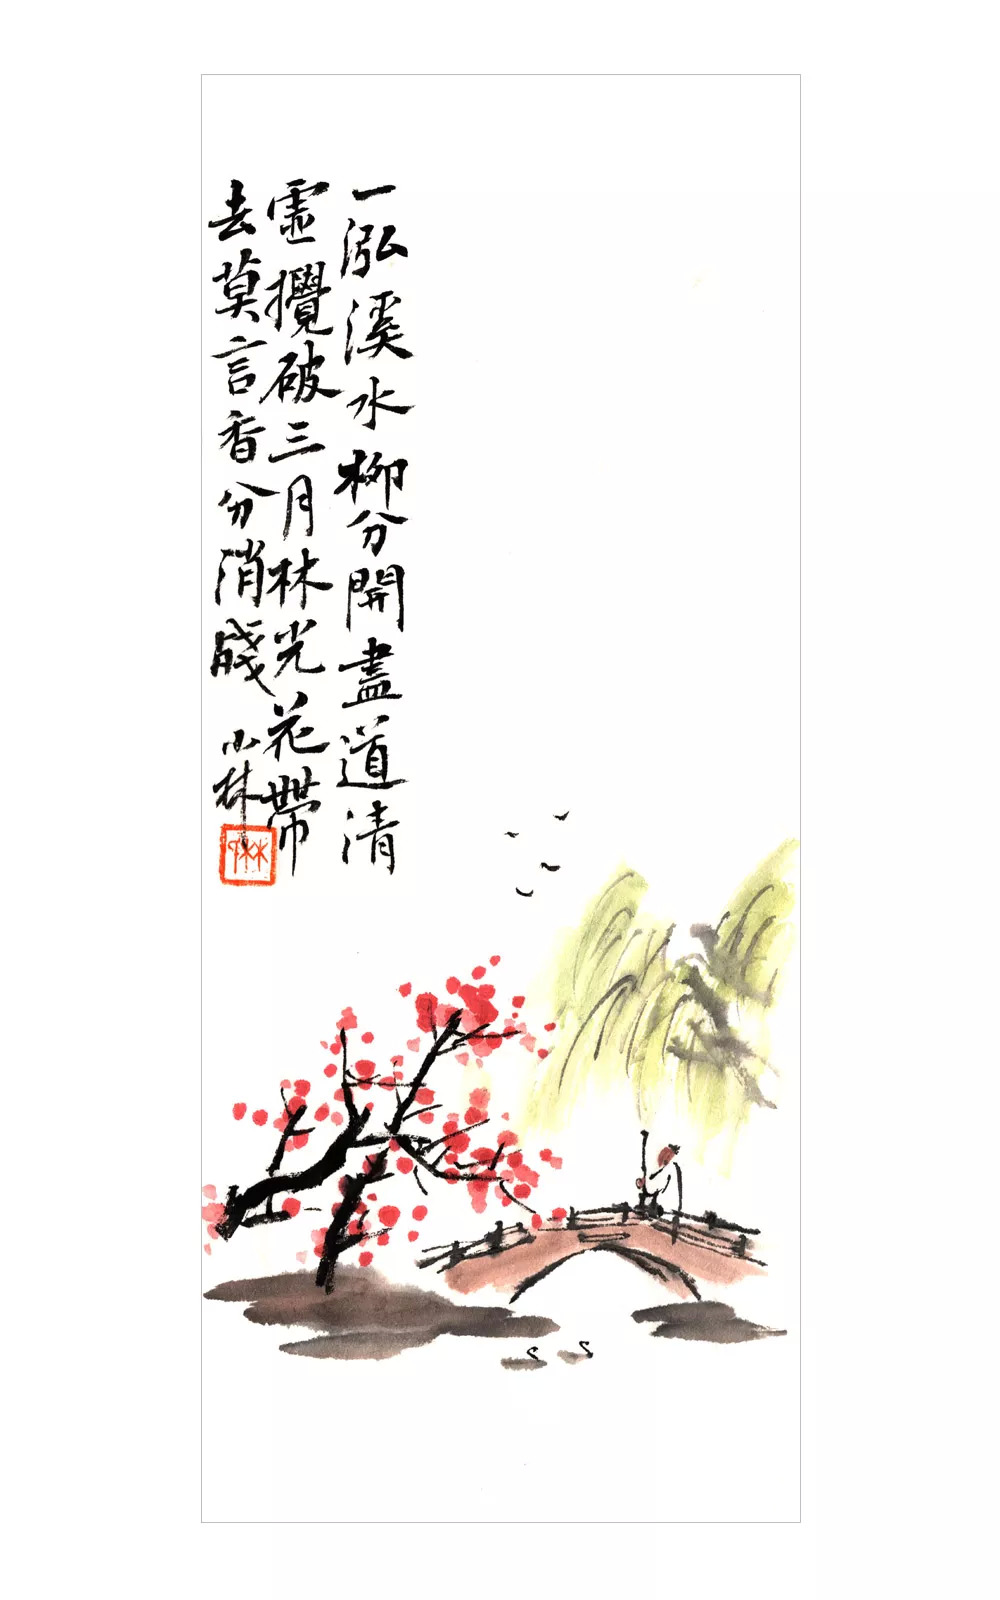 一泓溪水柳分開盡道清
虛攪破三月林光花帶
去莫言香分消殘
小林